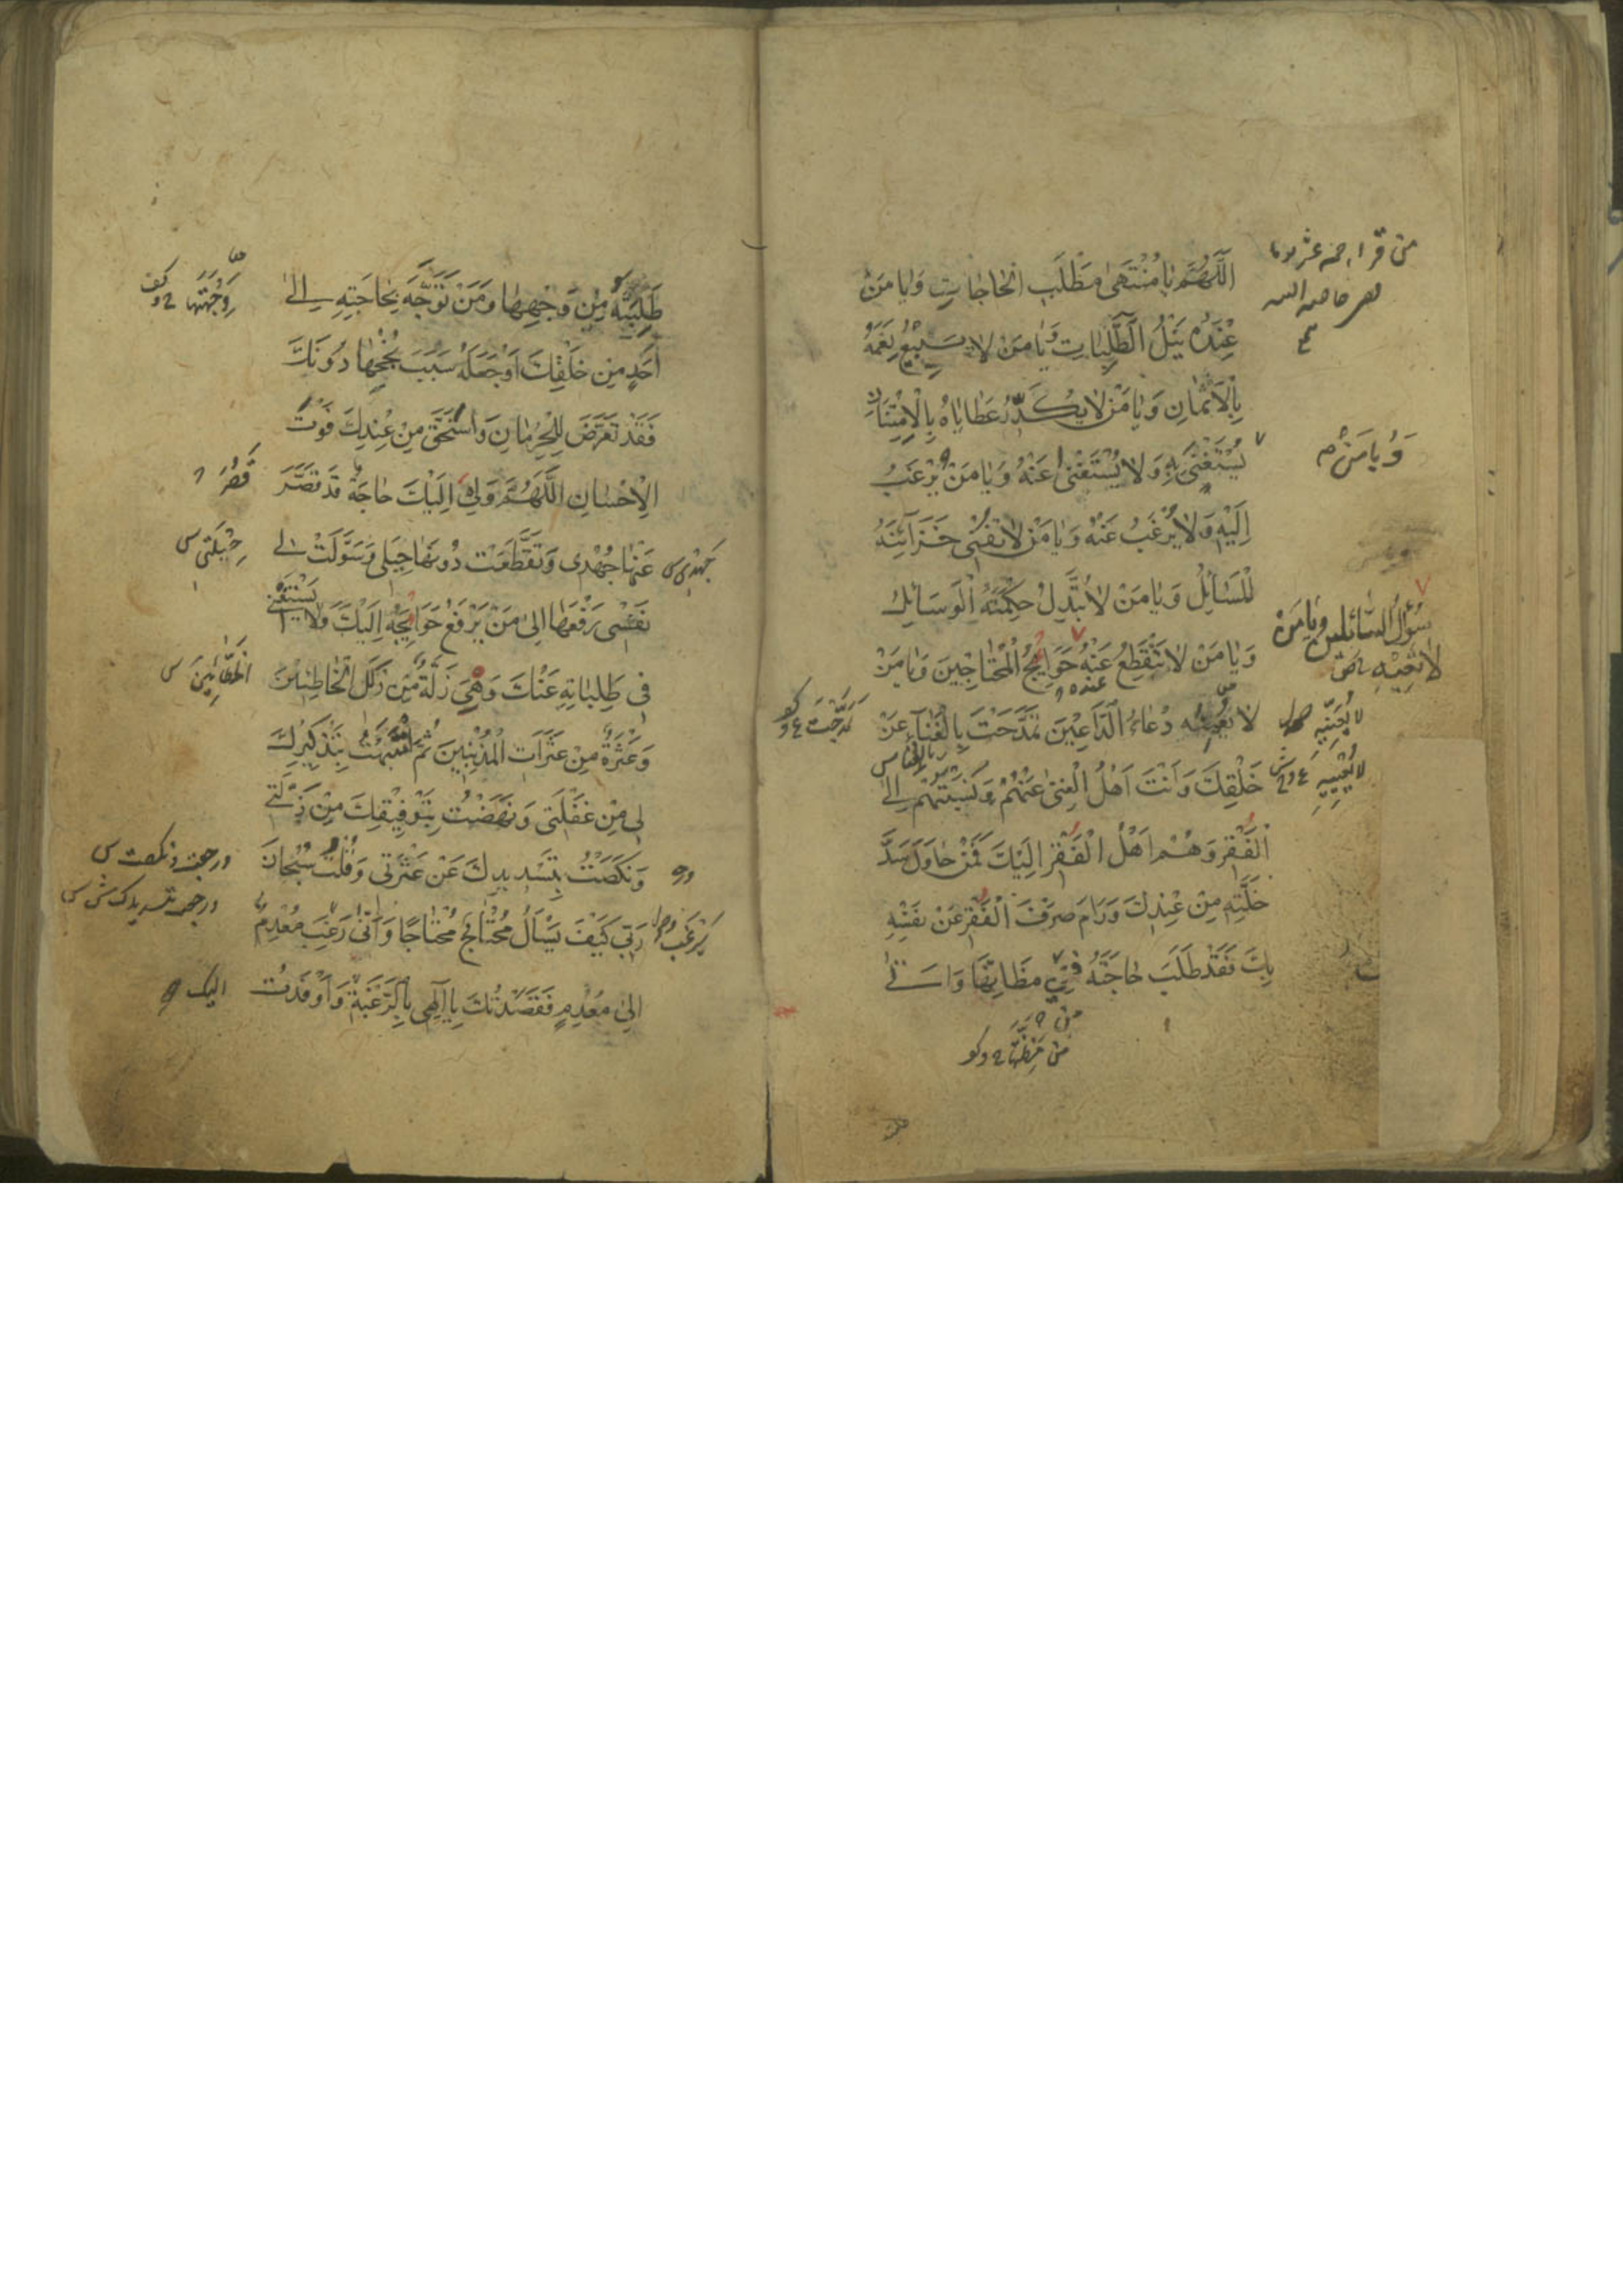 اَللّٰهُمَّ يَا مُنْتَهىٰ مَطْلَبِ الْحَاجَاتِ وَيَا مَنْ
عِنْدَهُ نَيْلُ الطَّلِبَاتِ وَيَا مَنْ لَا يَبِيْعُ نِعَمَهُ
بِالْاَثْمَانِ وَيَا مَنْ لَا يُكَدِّرُ عَطَايَاهُ بِالْاِمْتِنَانِ
يُسْتَغْنىٰ بِهِ وَلَا يُسْتَغْنىٰ عَنْهُ وَيَا مَنْ يُرْغَبُ
وَيَا مَنْ
اِلَيْهِ وَلَا يُرْغَبُ عَنْهُ وَيَا مَنْ لَا تَفْنىٰ خَزَآئِنَهُ
الْمَسَائِلُ وَيَا مَنْ لَا تُبَدِّلُ حِكْمَتَهُ الْوَسَائِلُ
سُؤَالُ السَّائِلِينَ وَيَا مَنْ
وَيَا مَنْ لَا تَنْقَطِعُ عَنْهُ حَوَايِجُ الْمُحْتَاجِينَ وَيَا مَنْ
عنده
لَا يُعَنِّيهِ دُعَاءُ الدَّاعِيْنَ تَمَدَّحْتَ بِالْغَنَاءِ عَنْ
خَلْقِكَ وَاَنْتَ اَهْلُ الْغِنىٰ عَنْهُمْ وَنَسَبْتَهُمْ اِلَى
الْفَقْرِ وَهُمْ اَهْلُ الْفَقْرِ اِلَيْكَ فَمَنْ حَاوَلَ سَدَّ
خَلَّتِهِ مِنْ عِنْدِكَ وَرَامَ صَرْفَ الْفَقْرِ عَنْ نَفْسِهِ
بِكَ فَقَدْ طَلَبَ حَاجَتَهُ فِي مَظَانِّهَا وَاَتىٰ
طَلِبَتَهُ مِنْ وَجْهِهَا وَمَنْ تَوَجَّهَ بِحَاجَتِهِ اِلىٰ
اَحَدٍ مِنْ خَلْقِكَ اَوْ جَعَلَهُ سَبَبَ نُجْحِهَا دُونَكَ
فَقَدْ تَعَرَّضَ لِلْحِرْمَانِ وَاسْتَحَقَّ مِنْ عِنْدِكَ فَوْتَ
الْاِحْسَانِ اَللّٰهُمَّ وَلِيَ اِلَيْكَ حَاجَةٌ قَدْ قَصَّرَ
قَصُرَ
عَنْهَا جُهْدِى وَتَقَطَّعَتْ دُونَهَا حِيَلِى وَسَوَّلَتْ لِى
حِيْلَتِى س
نَفْسِى رَفْعَهَا اِلىٰ مَنْ يَرْفَعُ حَوَايِجَهُ اِلَيْكَ وَلَا يَسْتَغْنِى
فِى طَلِبَاتِهِ عَنْكَ وَهِيَ زَلَّةٌ مِنْ زَلَلِ الْخَاطِئِيْنَ
الْخَطَّائِينَ س
وَعَثْرَةٌ مِنْ عَثَرَاتِ الْمُذْنِبِيْنَ ثُمَّ انْتَبَهْتُ بِتَذْكِيْرِكَ
لِى مِنْ غَفْلَتِى وَنَهَضْتُ بِتَوْفِيْقِكَ مِنْ زَلَّتِى
وَنَكَصْتُ بِتَسْدِيدِكَ عَنْ عَثْرَتِى وَقُلْتُ سُبْحَانَ
ورجعت ونكصت س
رَبِّى كَيْفَ يَسْأَلُ مُحْتَاجٌ مُحْتَاجًا وَاَنّىٰ رَغِبَ مُعْدِمٌ
اِلىٰ مُعْدِمٍ فَقَصَدْتُكَ يَا اِلٰهِى بِالرَّغْبَةِ وَاَوْفَدْتُ
اليك